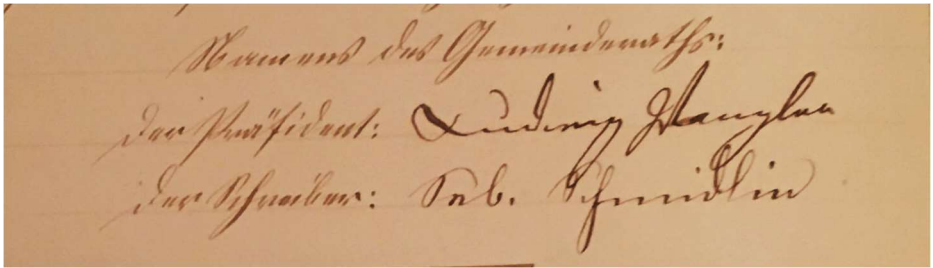 Namens des Gemeinderaths:
Der Präsident: Ludwig Spengler
der Schreiber: Seb. Schmidlin